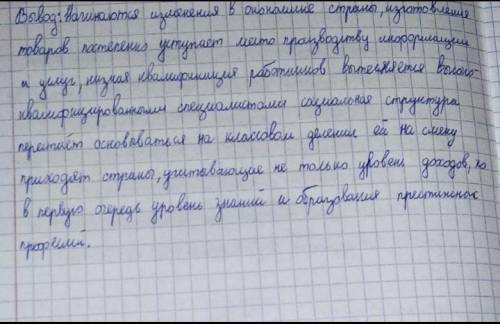 Вывод: начинаются изменения в экономике страны, изготовления
товаров постепенно уступает место производству информации
и услуг, низкая квалификация работников вытесняется высоко-
квалифицированными специалистами социальная структура
перестаёт основываться на классовом делении ей на смену
приходят страны, учитывающие не только уровень доходов, но
в первую очередь уровень знаний и образования престижность
профессий.